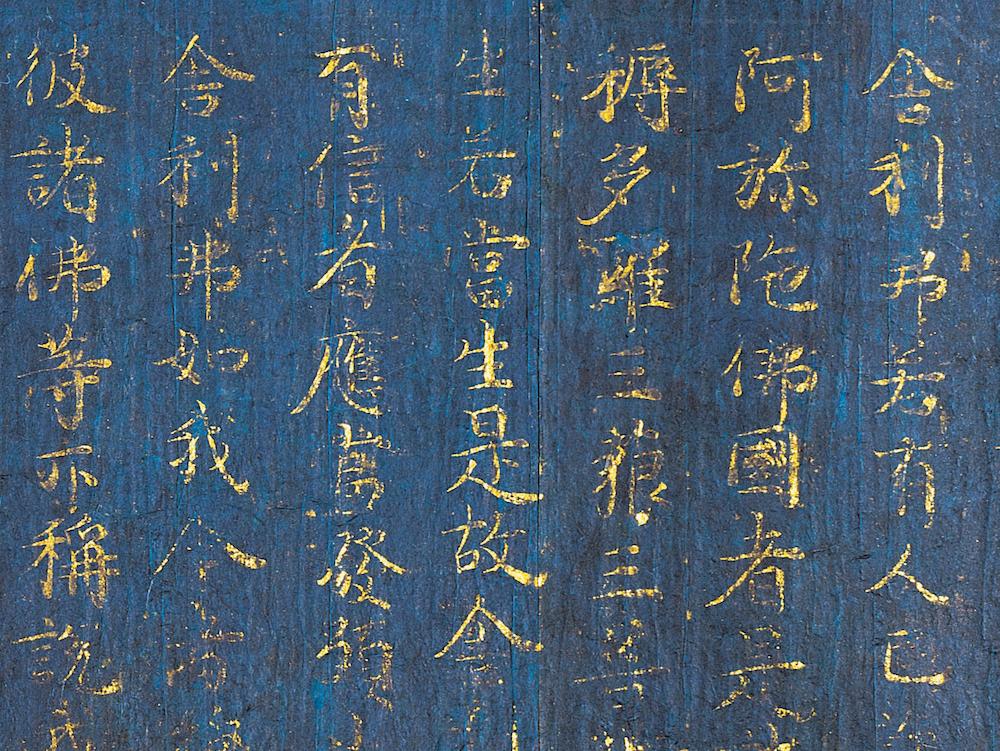 舍利弗若有人已
阿弥陁佛國者是
耨多羅三藐三菩
生若當生是故舍
有信者應當發願
舍利弗如我今
彼諸佛等亦稱說